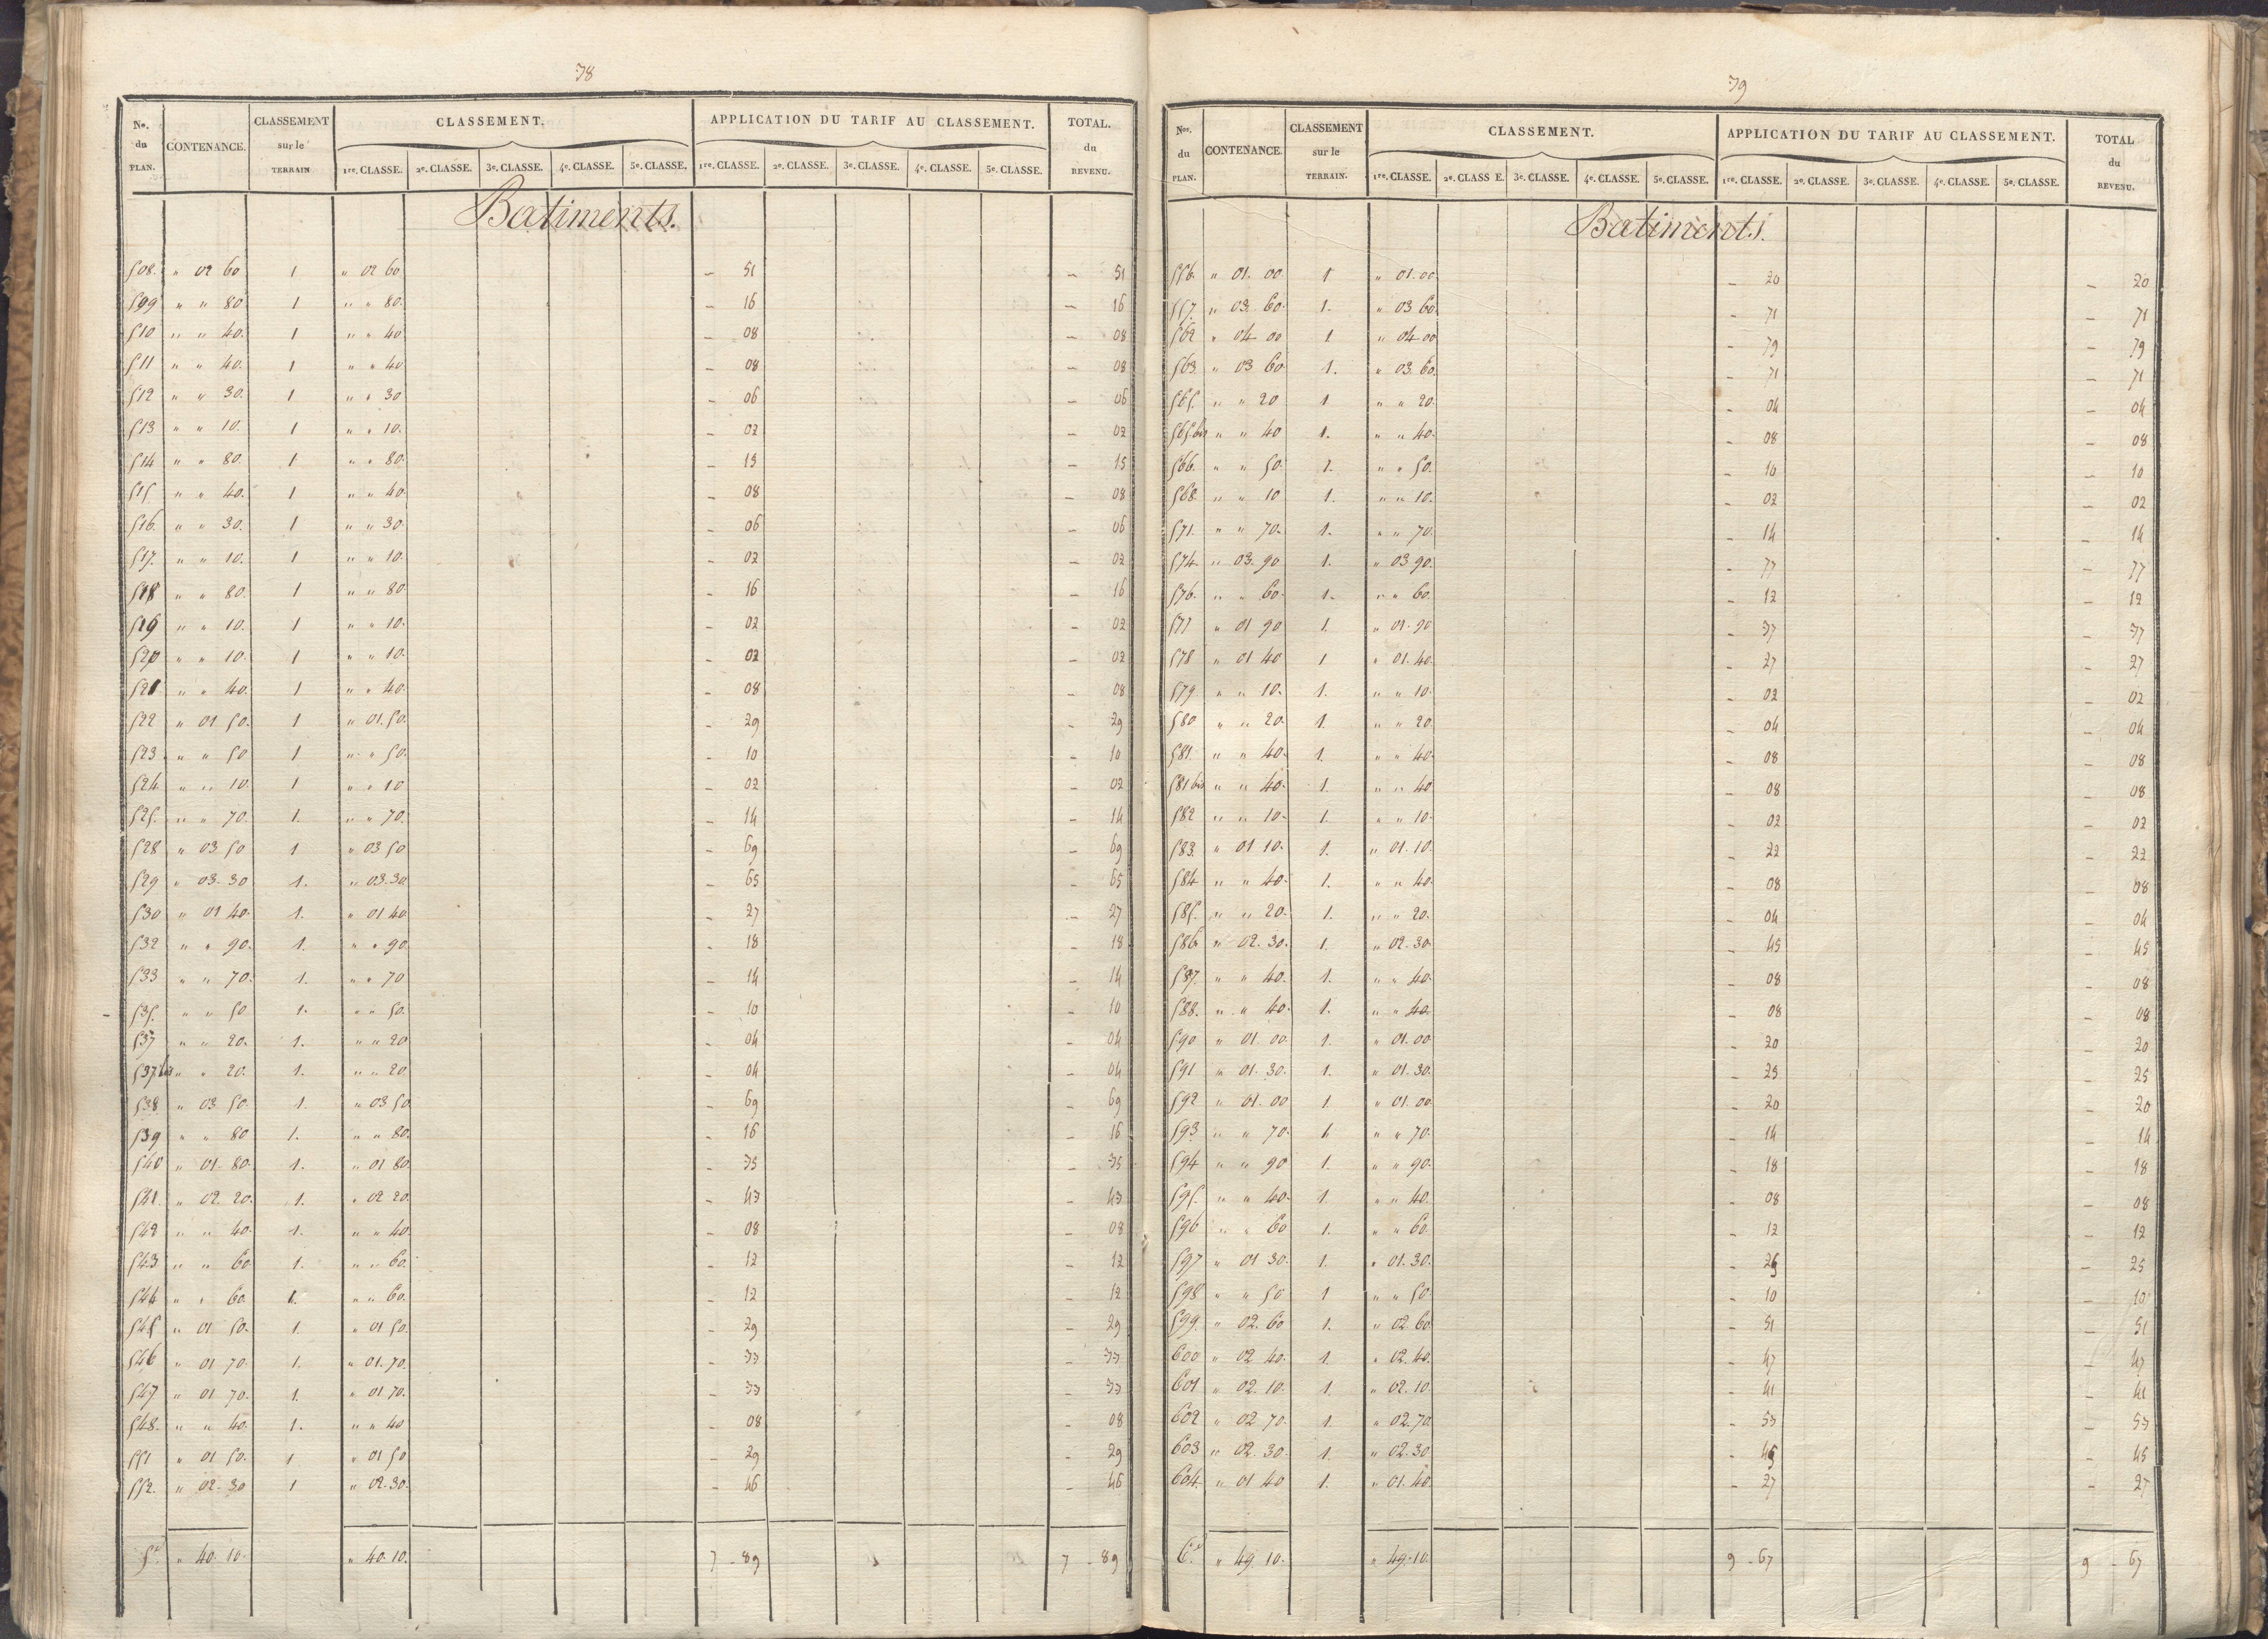 78
No. du PLAN. CONTENANCE. CLASSEMENT sur le TERRAIN CLASSEMENT. APPLICATION DU TARIF AU CLASSEMENT. TOTAL. du REVENU.
1re. CLASSE. 2e. CLASSE. 3e. CLASSE. 4e. CLASSE. 5e. CLASSE. 1re. CLASSE. 2e. CLASSE. 3e. CLASSE. 4e. CLASSE. 5e. CLASSE.
Batiments.
508. " 02 60 1 " 02 60 - 51 - 51
509 " " 80 1 " " 80. - 16 - 16
510 " " 40. 1 " " 40 - 08 - 08
511 " " 40. 1 " " 40 - 08 - 08
512 " " 30. 1 " " 30 - 06 - 06
513 " " 10. 1 " " 10. - 02 - 02
514 " " 80. 1 " " 80. - 15 - 15
515. " " 40. 1 " " 40. - 08 - 08
516. " " 30. 1 " " 30. - 06 - 06
517. " " 10. 1 " " 10. - 02 - 02
518 " " 80. 1 " " 80. - 16 - 16
519 " " 10. 1 " " 10. - 02 - 02
520 " " 10. 1 " " 10. - 02 - 02
521 " " 40. 1 " " 40. - 08 - 08
522 " 01 50. 1 " 01.50. - 29 - 29
523 " " 50 1 " " 50. - 10 - 10
524. " " 10. 1 " " 10 - 02 - 02
525. " " 70. 1. " " 70. - 14 - 14
528 " 03 50 1 " 03 50 - 69 - 69
529 " 03. 30 1. " 03.30 - 65 - 65
530 " 01 40. 1. " 01 40 - 27 - 27
532 " " 90. 1. " " 90. - 18 - 18
533 " " 70. 1. " " 70 - 14 - 14
535. " " 50 1. " " 50. - 10 - 10
537 " " 20. 1. " " 20 - 04 - 04
537 bis " " 20. 1. " " 20 - 04 - 04
538 " 03 50. 1. " 03 50 - 69 - 69
539 " " 80 1. " " 80. - 16 - 16
540 " 01. 80. 1. " 01 80. - 35 - 35
541. " 02. 20. 1. " 02 20. - 43 - 43
542 " " 40. 1. " " 40. - 08 - 08
543 " " 60. 1. " " 60. - 12 - 12
544 " " 60. 1. " " 60. - 12 - 12
545 " 01 50. 1. " 01 50. - 29 - 29
546 " 01 70. 1. " 01.70. - 33 - 33
547 " 01 70. 1. " 01 70. - 33 - 33
548. " " 40. 1. " " 40 - 08 - 08
551 " 01 50. 1 " 01 50 - 29 - 29
552. " 02. 30 1 " 02.30. - 46 - 46
" 40. 10. " 40. 10. 7 - 89 7 - 89
79
Nos. du PLAN. CONTENANCE. CLASSEMENT sur le TERRAIN. CLASSEMENT. APPLICATION DU TARIF AU CLASSEMENT. TOTAL du REVENU.
1re. CLASSE. 2e. CLASS E. 3e. CLASSE. 4e. CLASSE. 5e. CLASSE. 1re. CLASSE. 2e. CLASSE. 3e. CLASSE. 4e. CLASSE. 5e. CLASSE.
Batiments.
556. " 01. 00 1 " 01.00 - 20 - 20
557. " 03. 60. 1. " 03 60. - 71 - 71
562 " 04 00 1 " 04 00 - 79 - 79
563. " 03 60. 1. " 03. 60. - 71 - 71
565. " " 20 1 " " 20. - 04 - 04
565 bis " " 40 1. " " 40. - 08 - 08
566. " " 50. 1. " " 50. - 10 - 10
568. " " 10 1. " " 10. - 02 - 02
571. " " 70. 1. " " 70. - 14 - 14
574. " 03. 90 1. " 03 90. - 77 - 77
576. " " 60. 1. " " 60. - 12 - 12
577 " 01 90 1. " 01. 90 - 37 - 37
578 " 01 40 1 " 01. 40. - 27 - 27
579 " " 10. 1. " " 10. - 02 - 02
580 " " 20. 1. " " 20. - 04 - 04
581. " " 40. 1. " " 40. - 08 - 08
581 bis " " 40. 1. " " 40 - 08 - 08
582 " " 10. 1. " " 10. - 02 - 02
583. " 01 10. 1. " 01. 10. - 22 - 22
584 " " 40. 1. " " 40. - 08 - 08
585. " " 20. 1. " " 20. - 04 - 04
586 " 02. 30. 1. " 02. 30. - 45 - 45
587. " " 40. 1. " " 40. - 08 - 08
588. " " 40. 1. " " 40. - 08 - 08
590 " 01. 00. 1. " 01. 00. - 20 - 20
591 " 01. 30. 1. " 01. 30. - 25 - 25
592 " 01. 00 1. " 01. 00. - 20 - 20
593 " " 70. 1. " " 70. - 14 - 14
594 " " 90 1. " " 90. - 18 - 18
595. " " 40. 1. " " 40. - 08 - 08
596 " " 60 1. " " 60. - 12 - 12
597 " 01 30. 1. " 01. 30. - 25 - 25
598. " " 50 1 " " 50. - 10 - 10
599. " 02. 60 1. " 02. 60. - 51 - 51
600. " 02 40. 1. " 02. 40. - 47 - 47
601 " 02. 10. 1. " 02. 10. - 41 - 41
602 " 02 70. 1. " 02. 70. - 53 - 53
603 " 02. 30. 1. " 02. 30. - 45 - 45
604. " 01 40 1. " 01. 40. - 27 - 27
" 49 10. " 49. 10. 9 - 67 9 - 67